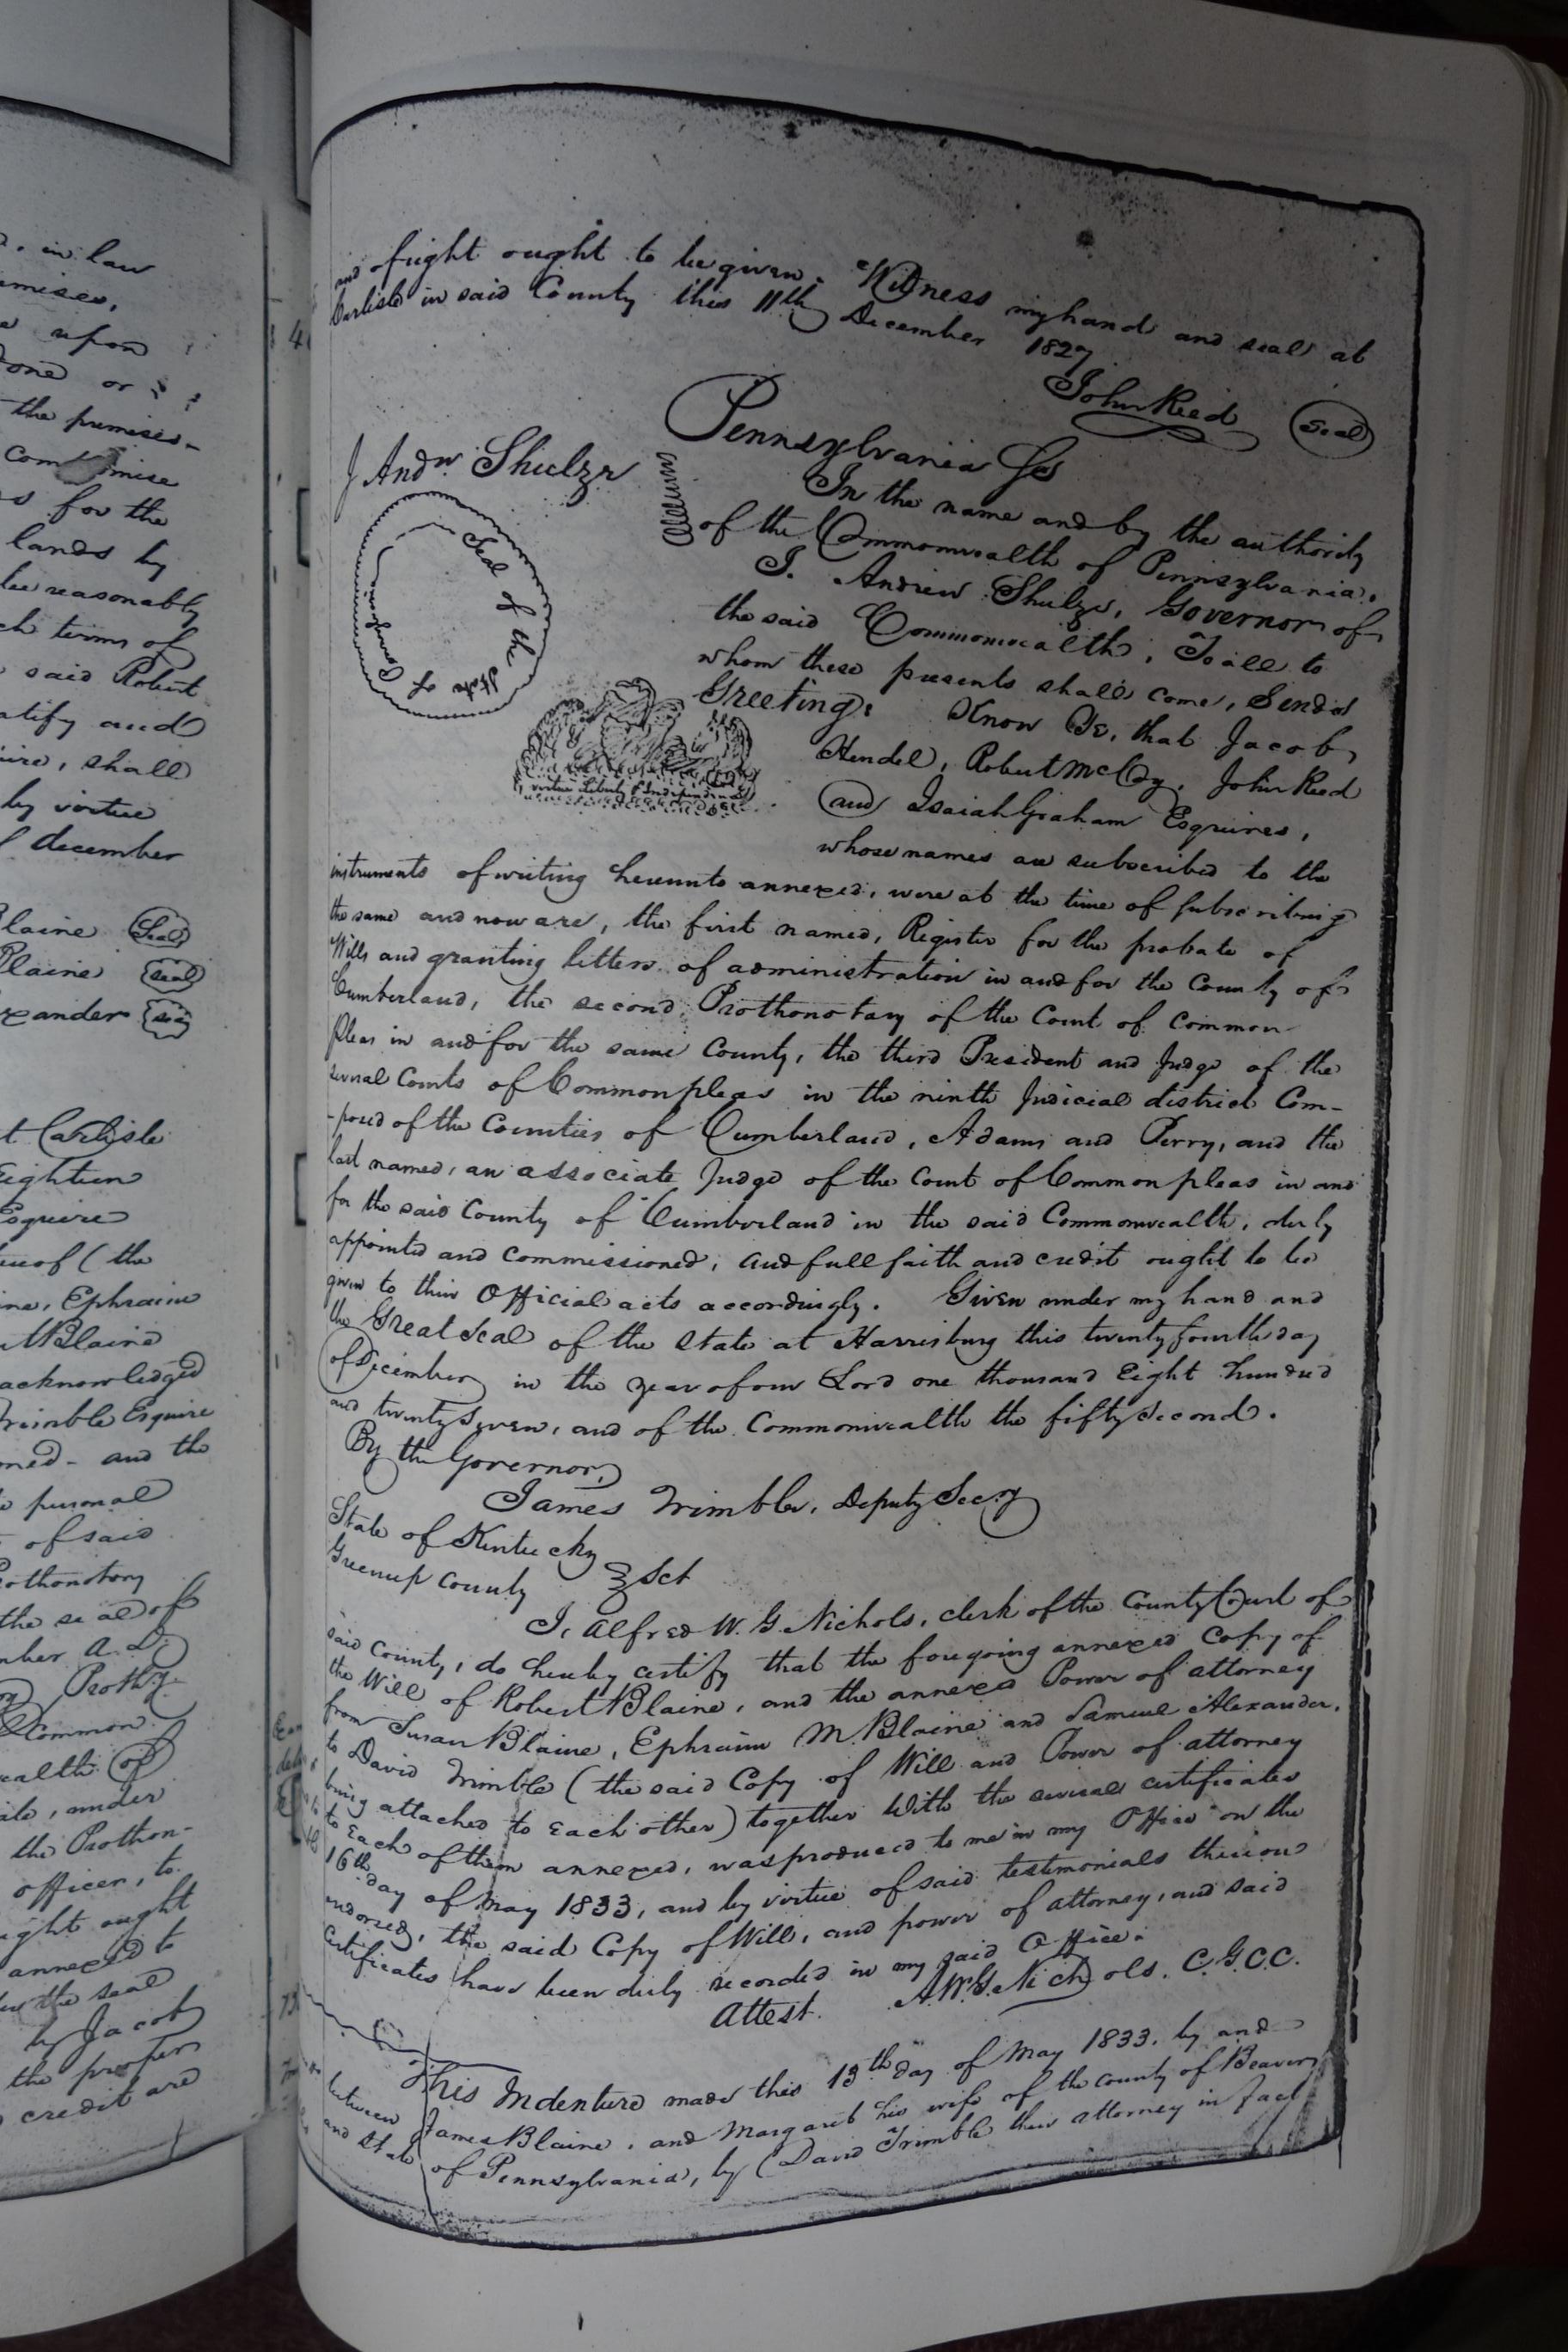 . in law
upon
one or
the premises-
com mise
s for the
lands by
be reasonably
ch terms of
said Robert
atify and
ire, shall
by virtue
december
Blaine Seal
Blaine Seal
exander
t Carlisle
Eighteen
Esquire
(the
ne, Ephraim
Blaine
acknowledged
Trimble Esquire
ned - and the
personal
of said
Prothonotary
the seal of
mber A.D.
Prothy.
Common
ealth of
under
the Prothon-
officer, to
ight ought
annexed to
the seal
by Jacob
the proper
credit are
and of right ought to be given. Witness my hand and seal at
Carlisle in said County this 11th December 1827
John Reed Seal
Pennsylvania Ss
J Andw Shulze
Seal of the State of
In the name and by the authority
of the Commonwealth of Pennsylvania.
J. Andrew Shulze, Governor of
the said Commonwealth, To all to
whom these presents shall come, Sends
Greeting: Know Ye, that Jacob
Hendel, Robert McCoy, John Reed
and Isaiah Graham Esquires,
whose names are subscribed to the
virtue Liberty & Independence
instruments of writing hereunto annexed, were at the time of subscribing
the same and now are, the first named, Register for the probate of
Wills and granting letters of administration in and for the County of
Cumberland, the second Prothonotary of the Court of Common
Pleas in and for the same County, the third President and Judge of the
several Courts of Common pleas in the ninth Judicial district Com-
-posed of the Counties of Cumberland, Adams and Perry, and the
last named, an associate Judge of the Court of Common pleas in and
for the said County of Cumberland in the said Commonwealth, duly
appointed and commissioned, and full faith and credit ought to be
given to their Official acts accordingly. Given under my hand and
the Great Seal of the State at Harrisburg this twenty fourth day
of December in the year of our Lord one thousand Eight hundred
and twenty Seven, and of the Commonwealth the fifty Second.
By the Governor,
James Trimble, Deputy Secy
State of Kentucky
Greenup County Sct
I, Alfred W. G. Nichols, clerk of the County Court of
said County, do hereby certify that the foregoing annexed Copy of
the Will of Robert Blaine, and the annexed Power of attorney
from Susan Blaine, Ephraim M Blaine and Samuel Alexander,
to David Trimble (the said Copy of Will and Power of attorney
being attached to each other) together With the several certificates
to Each of them annexed, was produced to me in my Office on the
16th day of May 1833, and by virtue of said testimonials thereon
endorsed, the said Copy of Will, and power of attorney, and said
Certificates have been duly recorded in my said Office.
Attest. A.W.G. Nichols. C.G.C.C.
This Indenture made this 13th day of May 1833. by and
between James Blaine, and Margaret his wife of the County of Beaver
and State of Pennsylvania, by David Trimble their attorney in fact